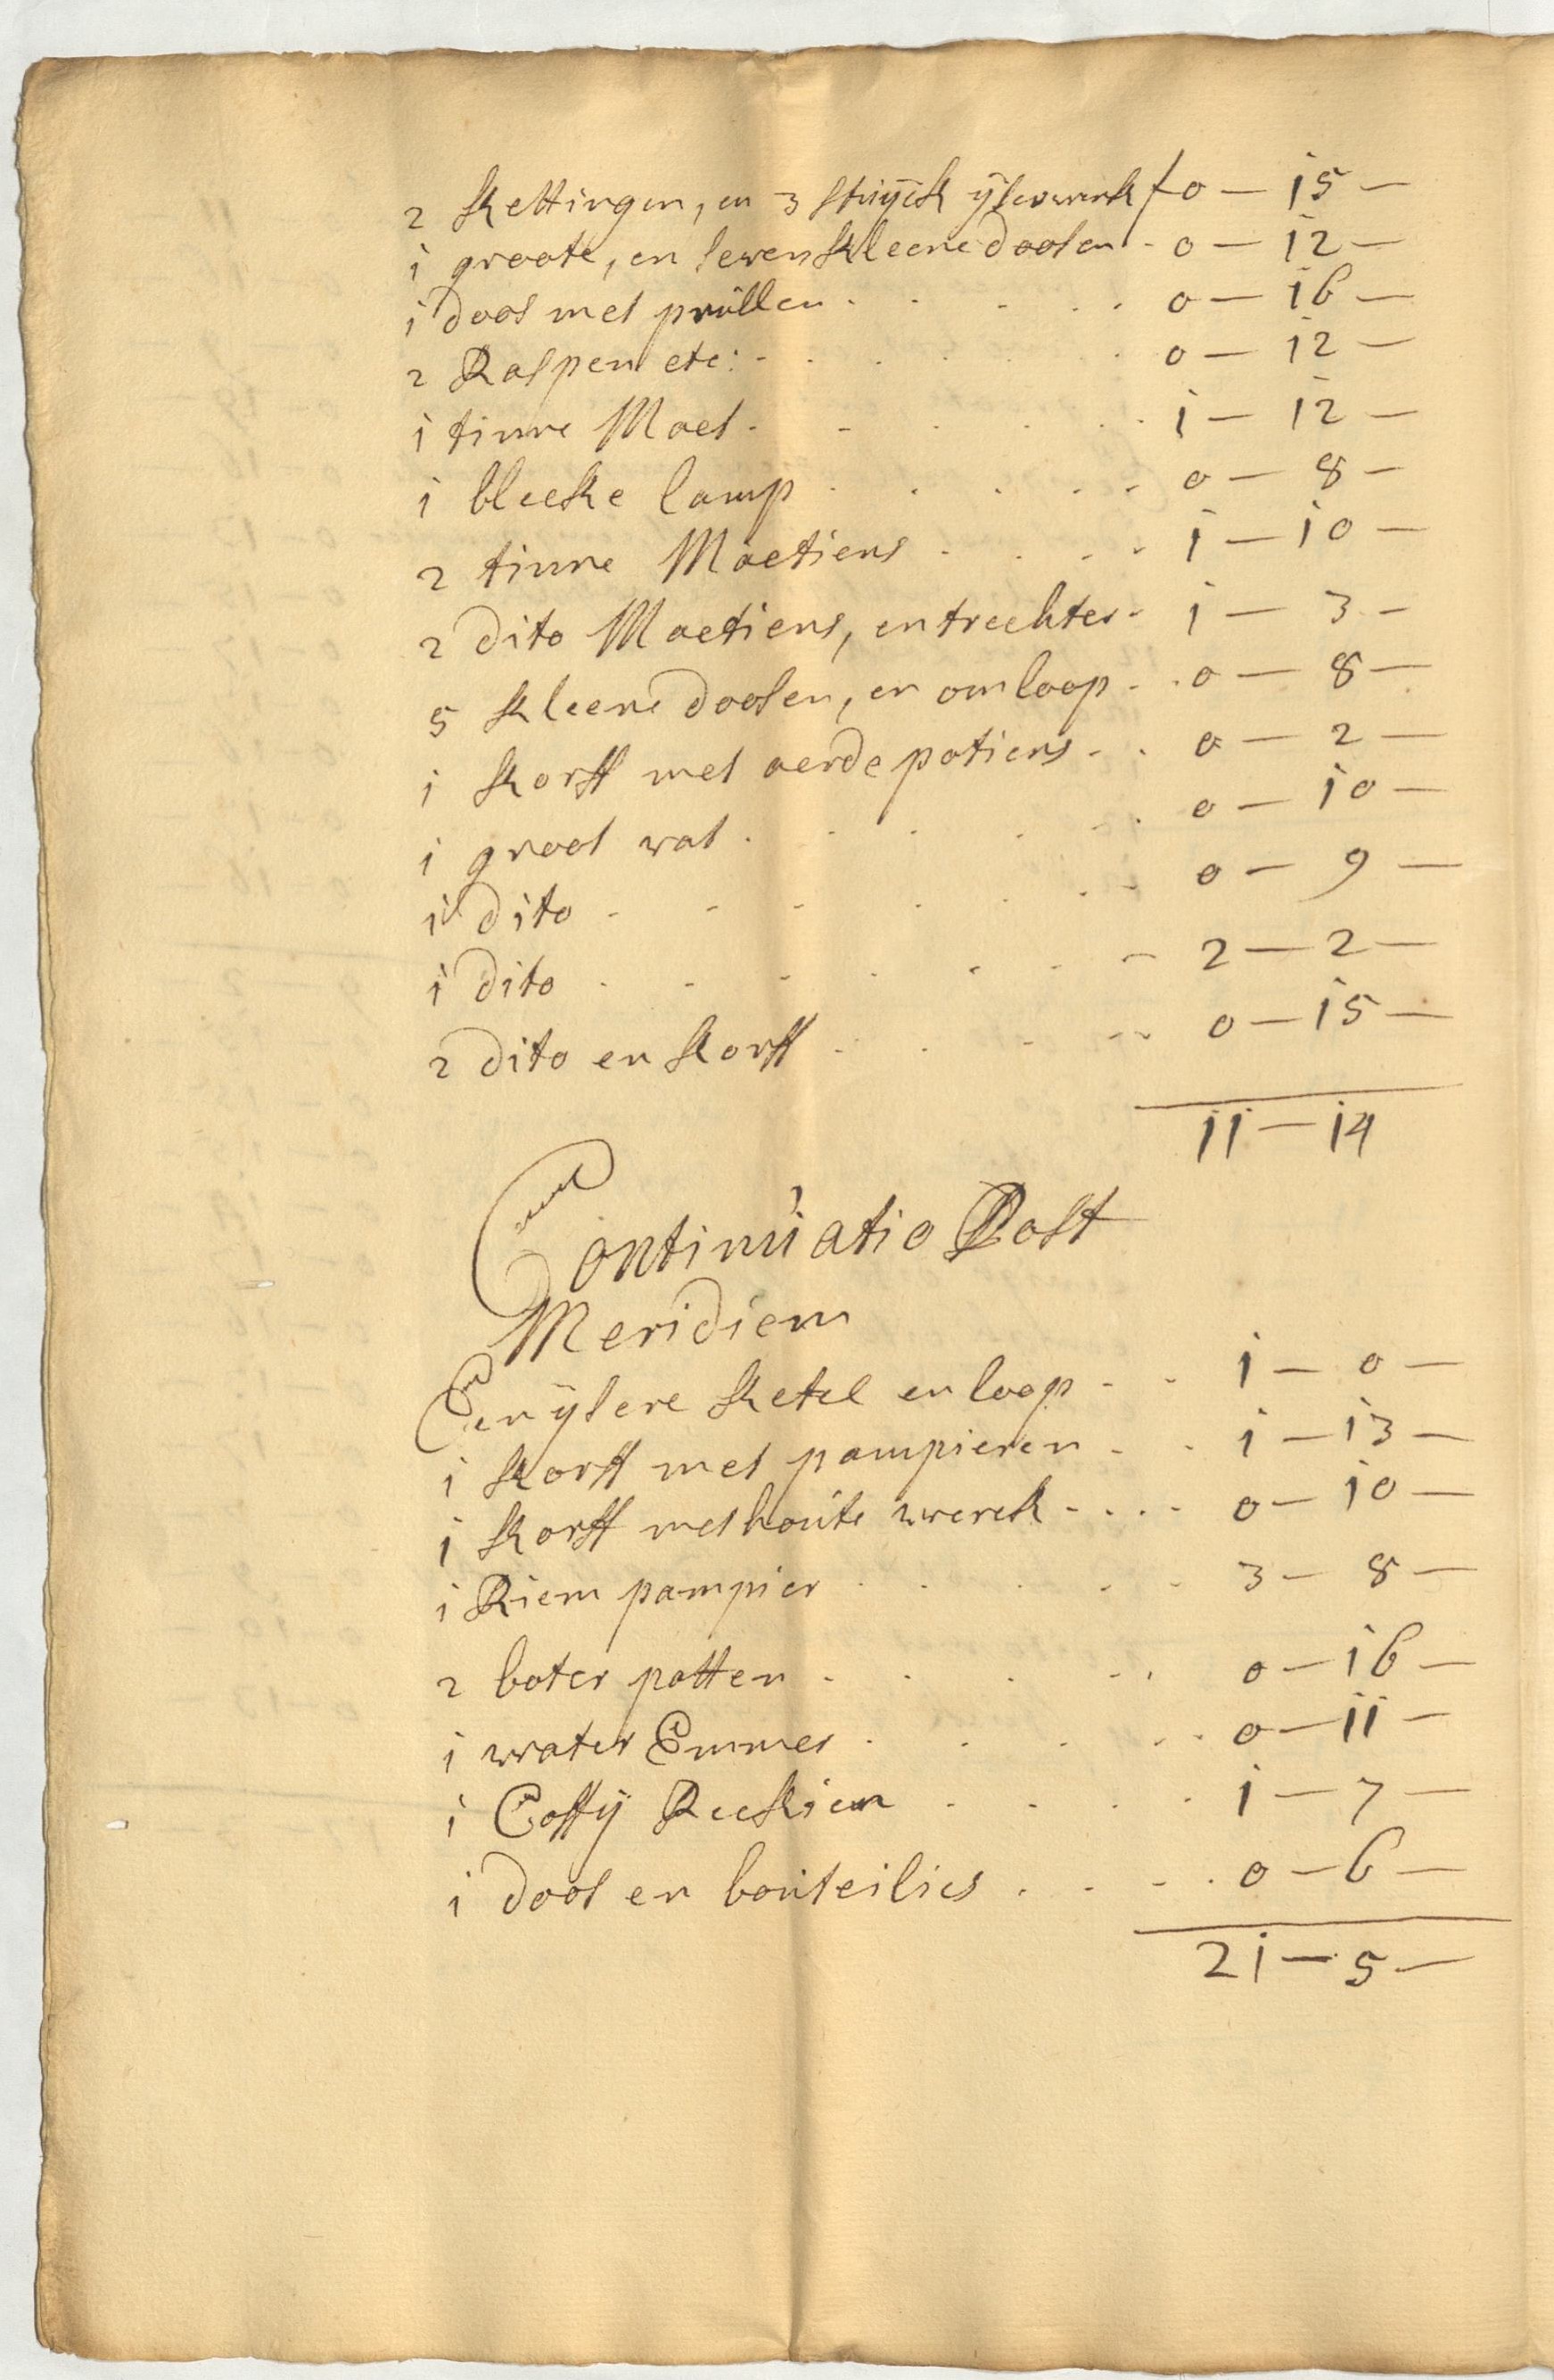 2 Kettingen, en 3 stuijck ijserwerk f 0 — 15 —
1 groote, en seven kleene doosen - 0 — 12 —
1 doos met prullen . . . . 0 — 16 —
2 Raspen etc: . . . . 0 — 12 —
1 tinne Maet . . . . . 1 — 12 —
1 bleeke lamp . . . . . 0 — 8 —
2 tinne Maetiens . . . . 1 — 10 —
2 dito Maetiens, en trechter - 1 — 3 —
5 kleene doosen, en omloop - . 0 — 8 —
1 korff met aerde potiens - . 0 — 2 —
1 groot vat . . . . . 0 — 10 —
1 dito - - - . . . - 0 — 9 —
1 dito . - - . . - - 2 — 2 —
2 dito en korff . . . . 0 — 15 —
11 — 14
Continuatio Post
Meridiem
Een ijsere ketel en loop - . 1 — 0 —
1 korff met pampieren . . 1 — 13 —
1 korff met houte werck . . . . 0 — 10 —
1 Riem pampier . . . . . 3 — 8 —
2 boter potten . . . . . 0 — 16 —
1 water Emmer . . . . . 0 — 11 —
1 Coffij Reckien . . . . 1 — 7 —
1 doos en bouteilies . . . . 0 — 6 —
21 — 5 —